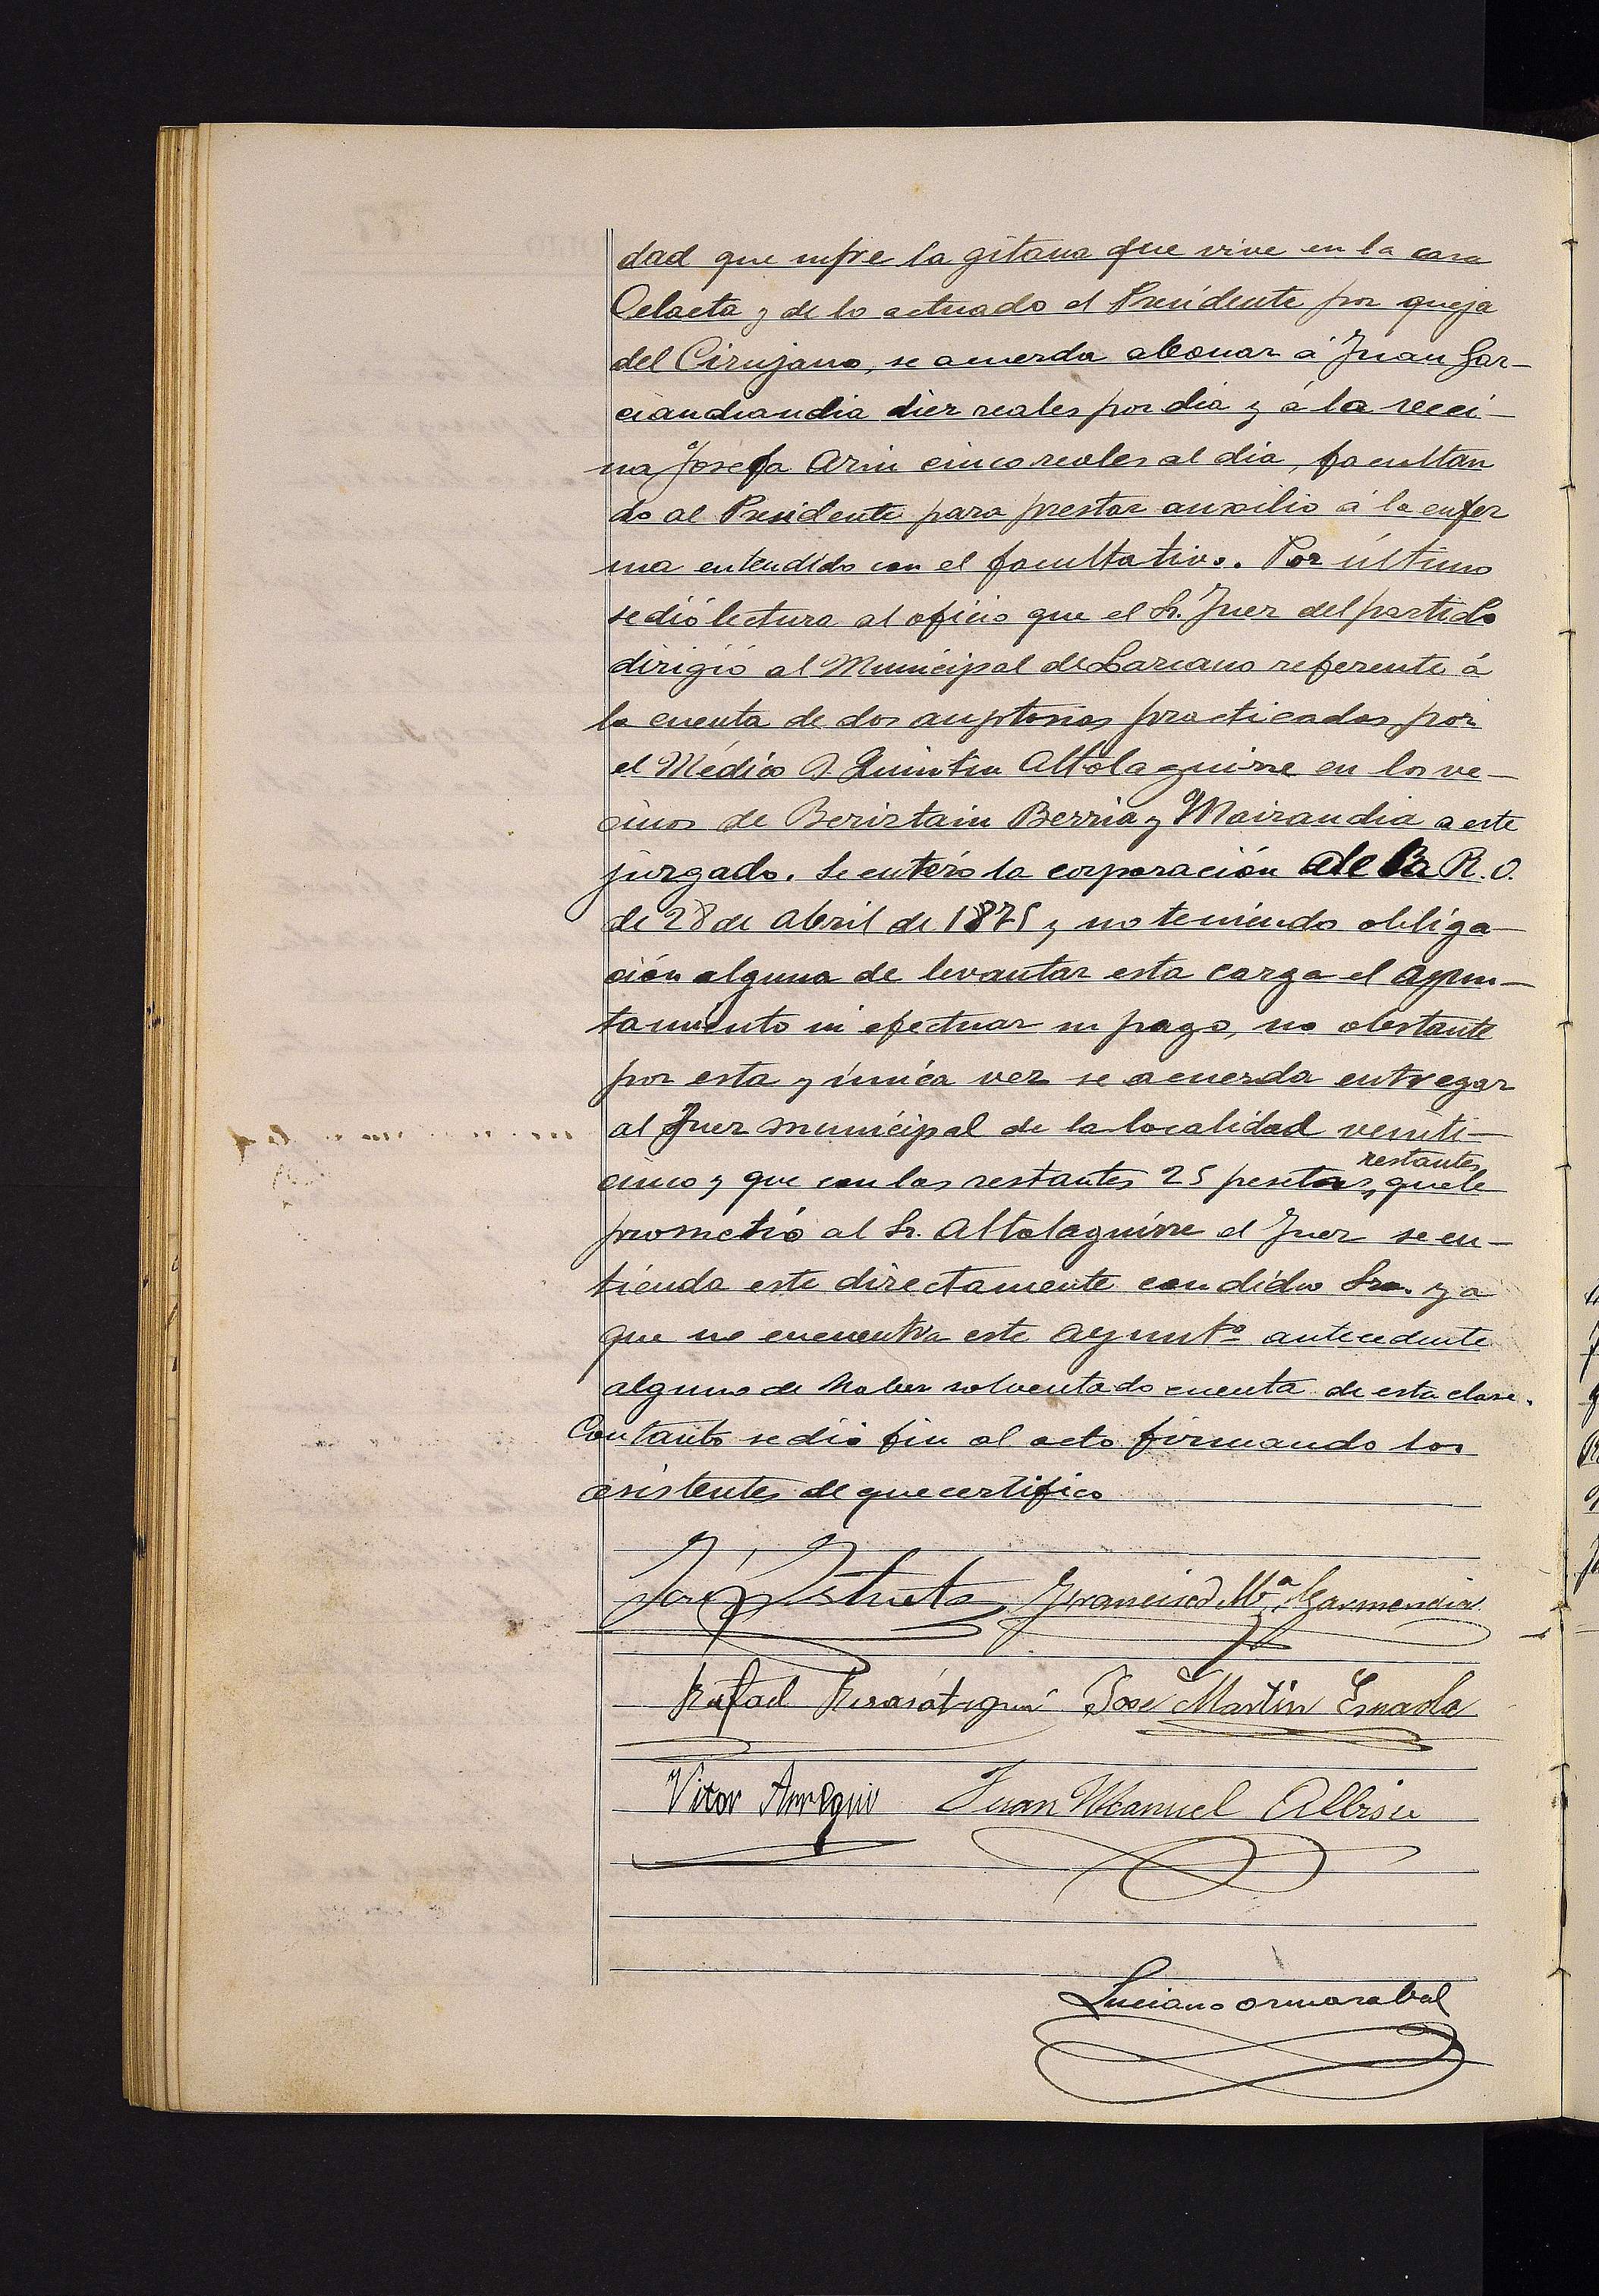 dad que sufre la gitana que vive en la casa
Celaeta y de lo actuado el Presidente por queja
del Cirujano, se acuerda abonar á Juan Gar-
ciandiandia diez reales por dia y á la veci-
na Josefa Arin cinco reales al dia, facultan
do al Presidente para prestar auxilio á la enfer
ma entendido con el facultativo. Por último
se dió lectura al oficio que el Sr. Juez del partido
dirigió al Municipal de Lazcano referente á
la cuenta de dos auptosias practicadas por
el Médico D Quintin Altolaguirre en los ve-
cinos de Beriztain Berria y Mairandia a este
juzgado. Se enteró la corporación de la R.O.
de 28 de Abril de 1875 y no teniendo obliga-
ción alguna de levantar esta carga el Ayun-
tamiento ni efectuar su pago, no obstante
por esta y única vez se acuerda entregar
al Juez municipal de la localidad veinti-
restantes
cinco y que con las restantes 25 pesetas, que le
prometió al Sr. Altolaguirre el Juez se en-
tienda este directamente con dicho Sr. ya
que no encuentra este Ayuntº antecedente
alguno de haber solventado cuenta de esta clase.
Con tanto se dió fin al acto firmando los
asistentes de que certifico
José Istueta Francisco Mª Garmendia
Rafael José Martin Esnaola
Vitor Aurregui Juan Manuel Albisu
Luciano Ormazabal